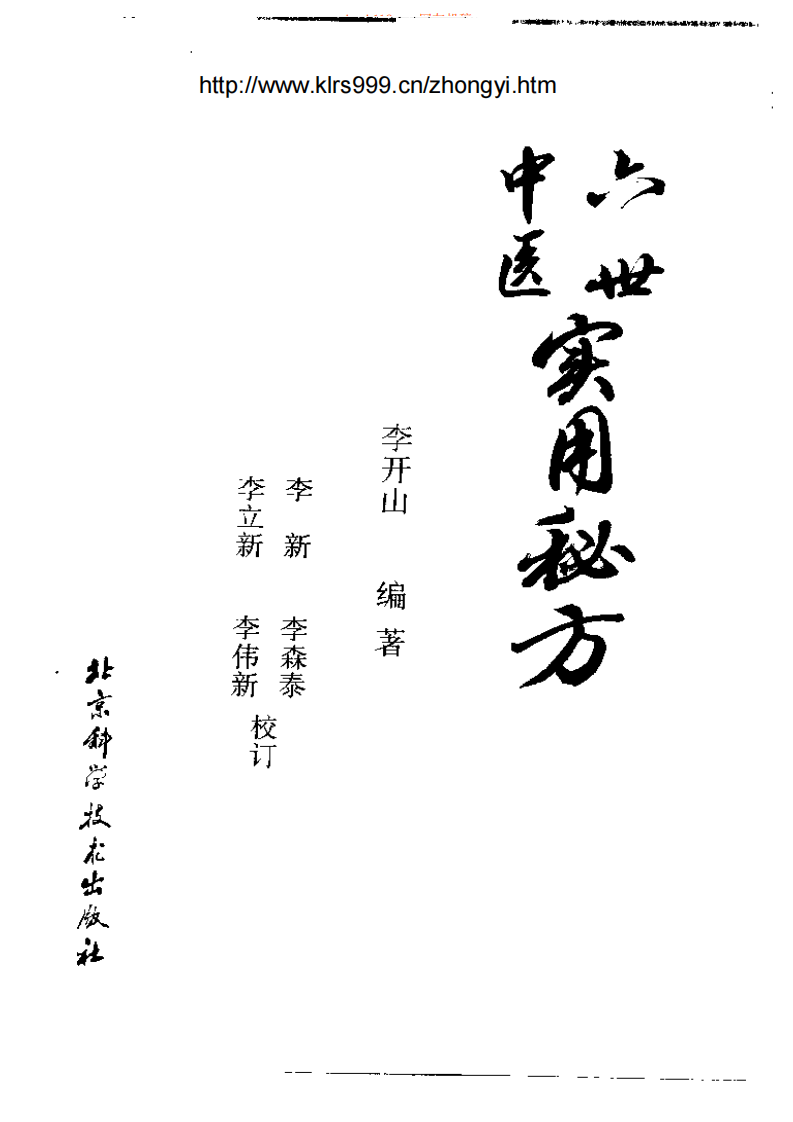 http://www.klrs999.cn/zhongyi.htm
六世
中医
实用秘方
李开山 编著
李新 李森泰
李立新 李伟新
校订
北京科学技术出版社